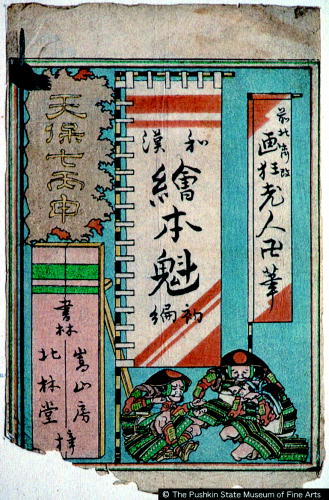 前北斎改
画狂老人卍筆
和漢
繪本魁
初編
天保七丙申
書林
嵩山房
北林堂
梓
© The Pushkin State Museum of Fine Arts